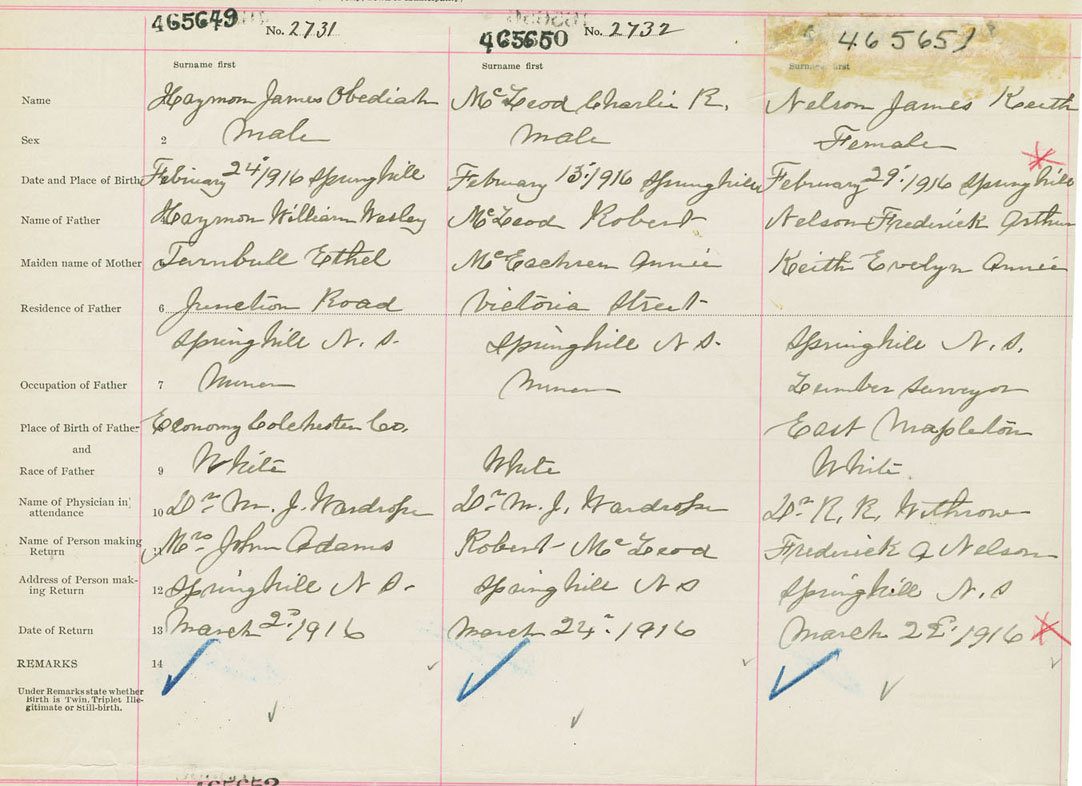 465649 No. 2731 465650 No. 2732 465651
Surname first Surname first Surname first
Name Haymon James Obediah McLeod Charlie R. Nelson James Keith
Sex 2 Male Male Female
Date and Place of Birth February 24/1916 Springhill February 15/1916 Springhill February 29/1916 Springhill
Name of Father Haymon William Wesley McLeod Robert Nelson Frederick Arthur
Maiden name of Mother Turnbull Ethel McEachren Annie Keith Evelyn Annie
Residence of Father 6 Junction Road Victoria Street
Springhill N. S. Springhill N S. Springhill N. S.
Occupation of Father 7 Miner Miner Lumber Surveyor
Place of Birth of Father Economy Colchester Co. East Mapleton
and
Race of Father 9 White White White
Name of Physician in attendance 10 Dr M. J. Wardrope Dr M. J. Wardrope Dr R. R. Withrow
Name of Person making Return 11 Mrs John Adams Robert McLeod Frederick A Nelson
Address of Person making Return 12 Springhill N S. Springhill N S Springhill N. S
Date of Return 13 March 2/1916 March 24/1916 March /1916
REMARKS 14
Under Remarks state whether
Birth is Twin, Triplet Ille-
gitimate or Still-birth.